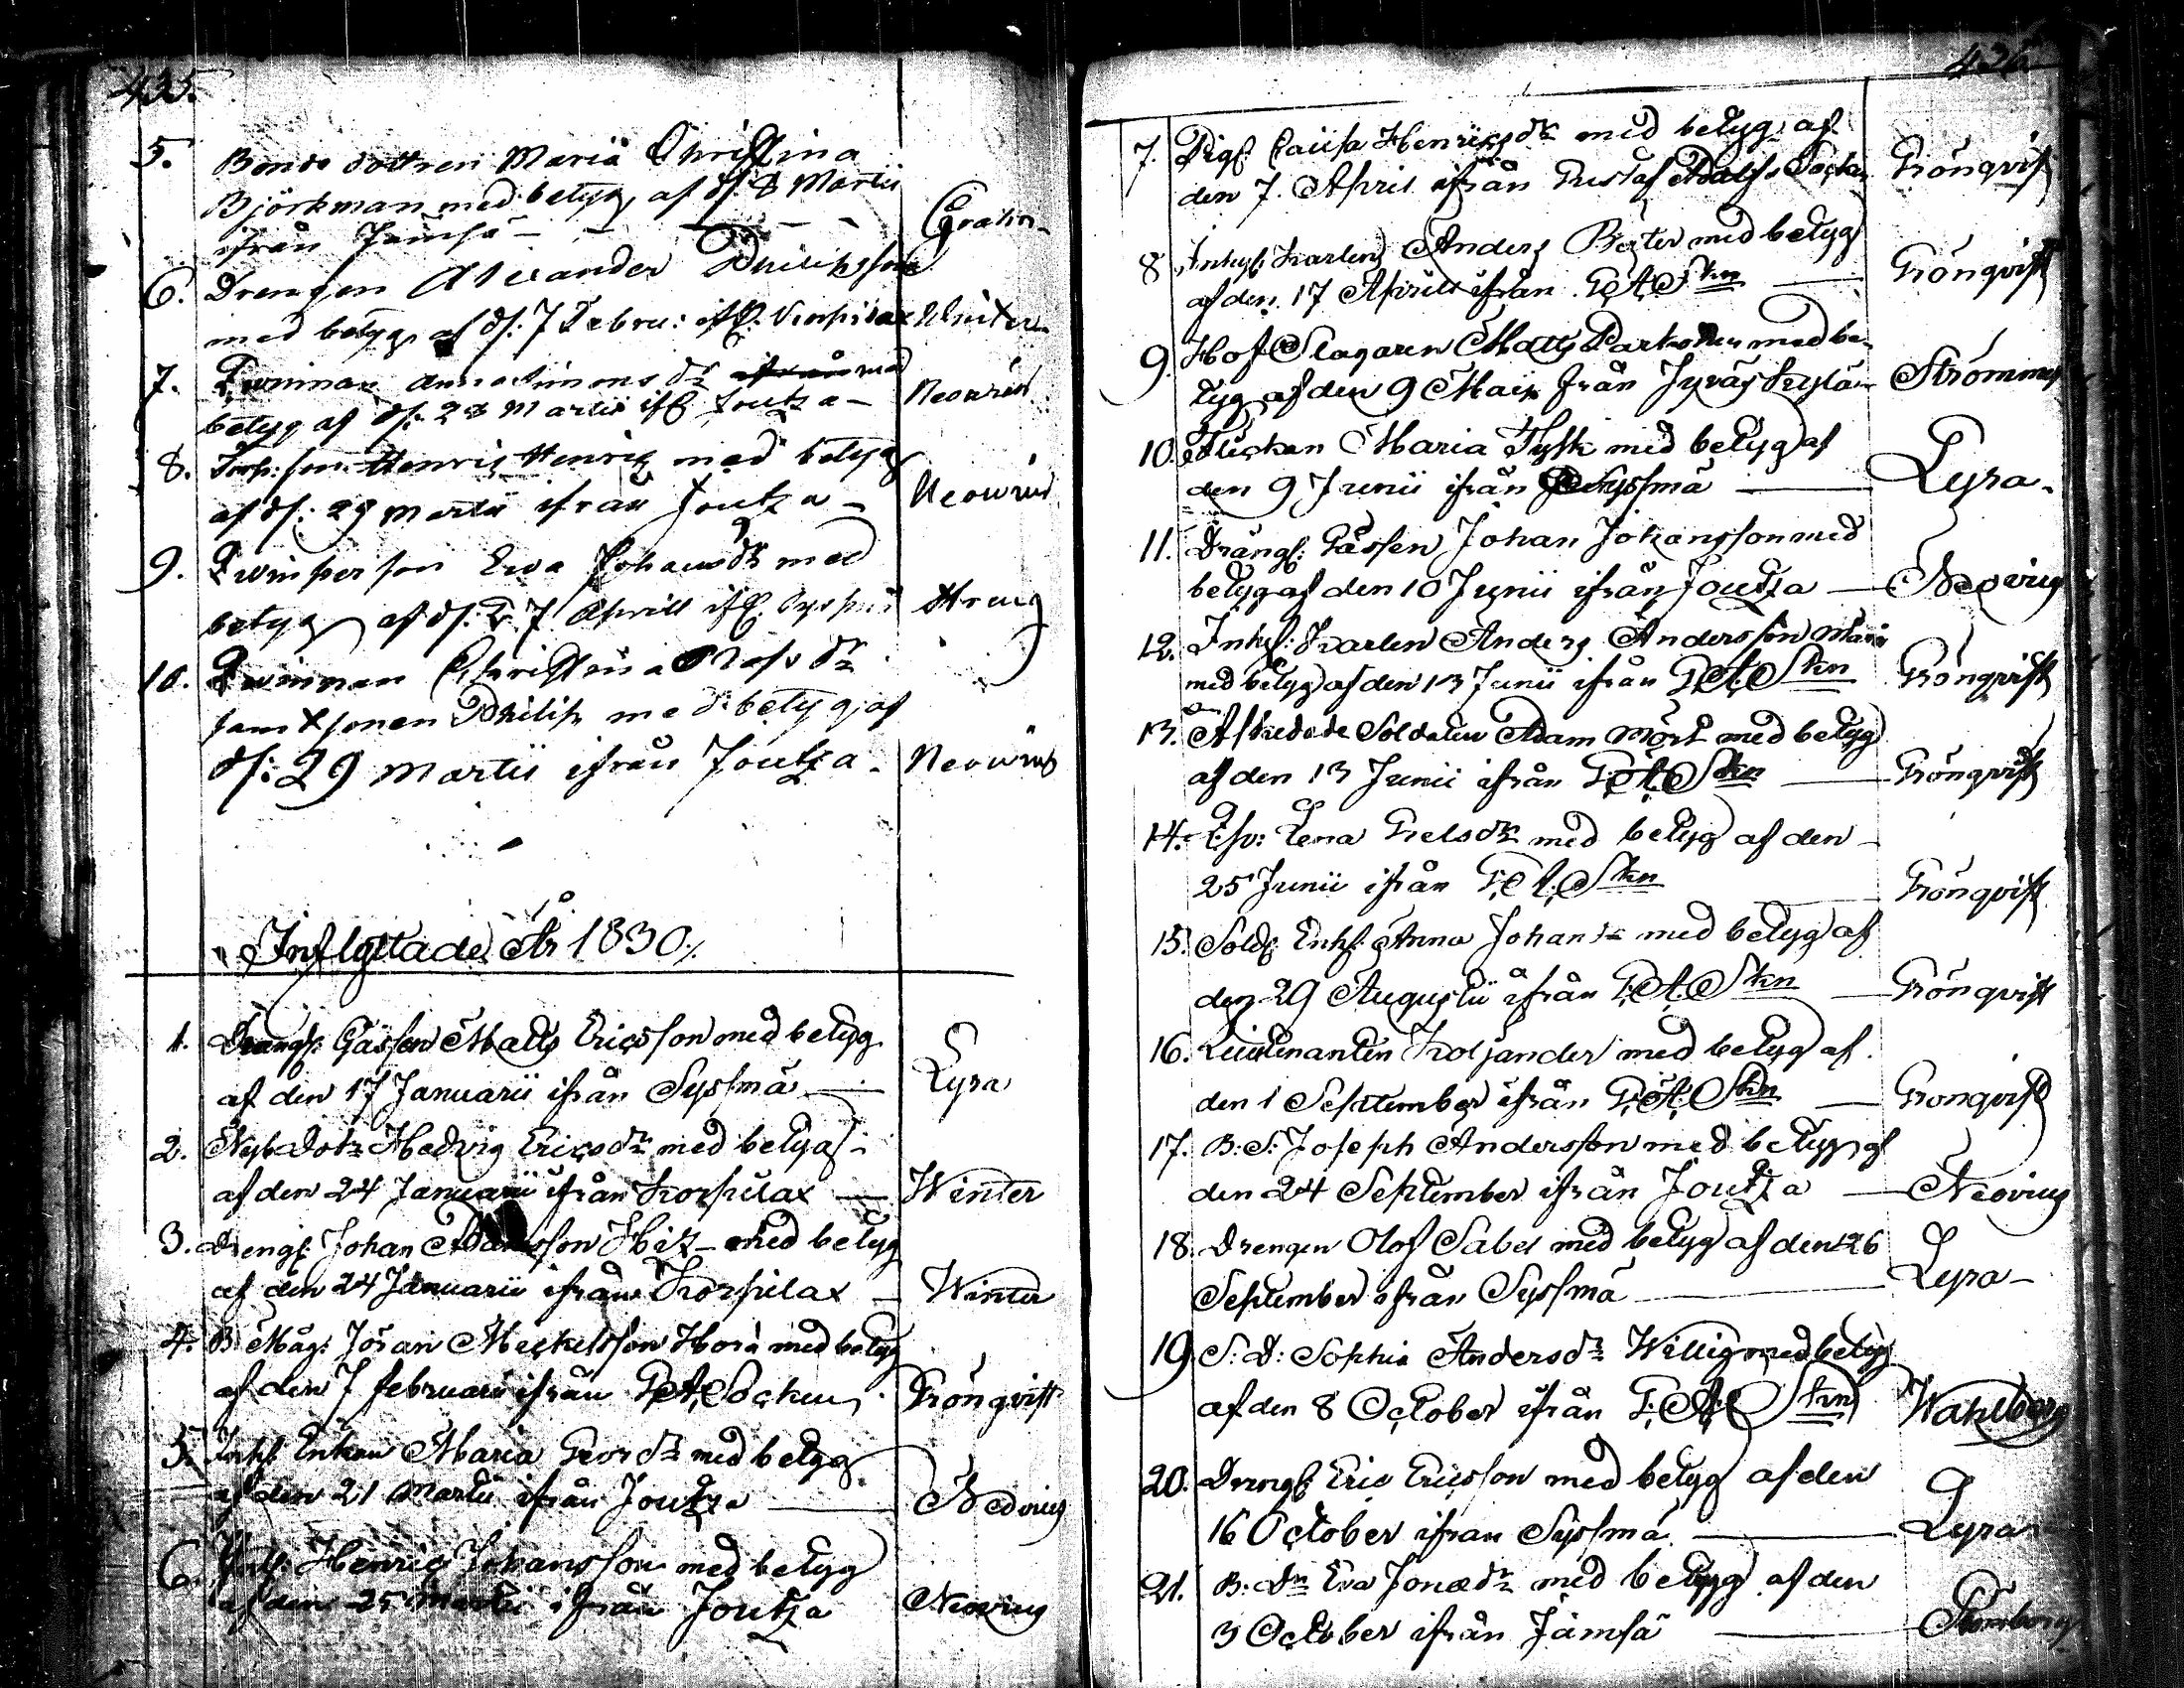 435.
5. Bonde dottren Maria Christina
Björkman med betyg af d: 8 Martii
ifrån Jämsä
6. Drengen Alexander Philipsson
med betyg af d: 7 Febru: ifr. Korpilax Winter
7. Qwinnan Anna Simonsdr med
betyg af d: 28 Martii ifr Joutza Neovius
8. Inh: son Henric Henric med betyg
af d: 29 Martii ifrån Joutza Neovius
9. Qwinsperson Eva Johansdr med
betyg af d: 7 Aprill ifr. Sysmä
10. Qwinnan Christina Olofsdr
samt sonen Philip med betyg af
d: 29 Martii ifrån Joutza Neovius
Inflyttade År 1830.
1. Drängs: Gåssen Matts Ericsson med betyg
af den 17 Januarii ifrån Syssmä Lyra
2. Nyb. Dotr Hedvig Ericsdr med betyg
af den 24 Januarii ifrån Korpilax Winter
3. Drengs: Johan Adamsson med betyg
af den 24 Januarii ifrån Korpilax Winter
4. B: Måg: Jöran Meckelsson Horá med betyg
af den 7 februarii ifrån G.A. Socken Grönqvist
5. Inhs: Enkan Maria Geordr med betyg
af den 21 Martii ifrån Joutza Neovius
6. Inhs: Henric Johansson med betyg
af den 25 Martii ifrån Joutza Neovius
436.
7. Pigs: Caisa Henricsdr med betyg af
den 7. April ifrån Gustaf Adolfs Socken Grönqvist
8 Inhys: Karlen Anders med betyg
af den 17 Aprill ifrån G.A. Skn Grönqvist
9. Hof Slagaren Matts Parkonen med be-
tyg af den 9 Maii från Jyväskylä
10. Flickan Maria Tysk med betyg af
den 9 Junii ifrån Syssmä Lyra
11. Drängs: Gåssen Johan Johansson med
betyg af den 10 Junii ifrån Joutza Neovius
12. Inhys: Karlen Anders Andersson
med betyg af den 13 Junii ifrån G.A. Skn Grönqvist
13. Afskedade Soldaten Adam Mört med betyg
af den 13 Junii ifrån G.A. Skn Grönqvist
14. Lena Gretsdr med betyg af den
25 Junii ifrån G.A. Skn Grönqvist
15. Solds: Enkf: Anna Johansdr med betyg af
den 29 Augustii ifrån G.A. Skn Grönqvist
16. Lieutenanten Koljander med betyg af
den 1 September ifrån G.A. Skn Gronqvist
17. B: S: Joseph Andersson med betyg af
den 24 September ifrån Joutza Neovius
18. Drengen Olof Sabel med betyg af den 26
September ifrån Syssmä Lyra
19. S: D: Sophia Andersdr Willig med betyg
af den 8 October ifrån G.A. Skn Wahlberg
20. Drengs: Eric Ericsson med betyg af den
16 October ifrån Syssmä Lyra
21. B: Dr Eva Jonasdr med betyg af den
3 October ifrån Jämsä